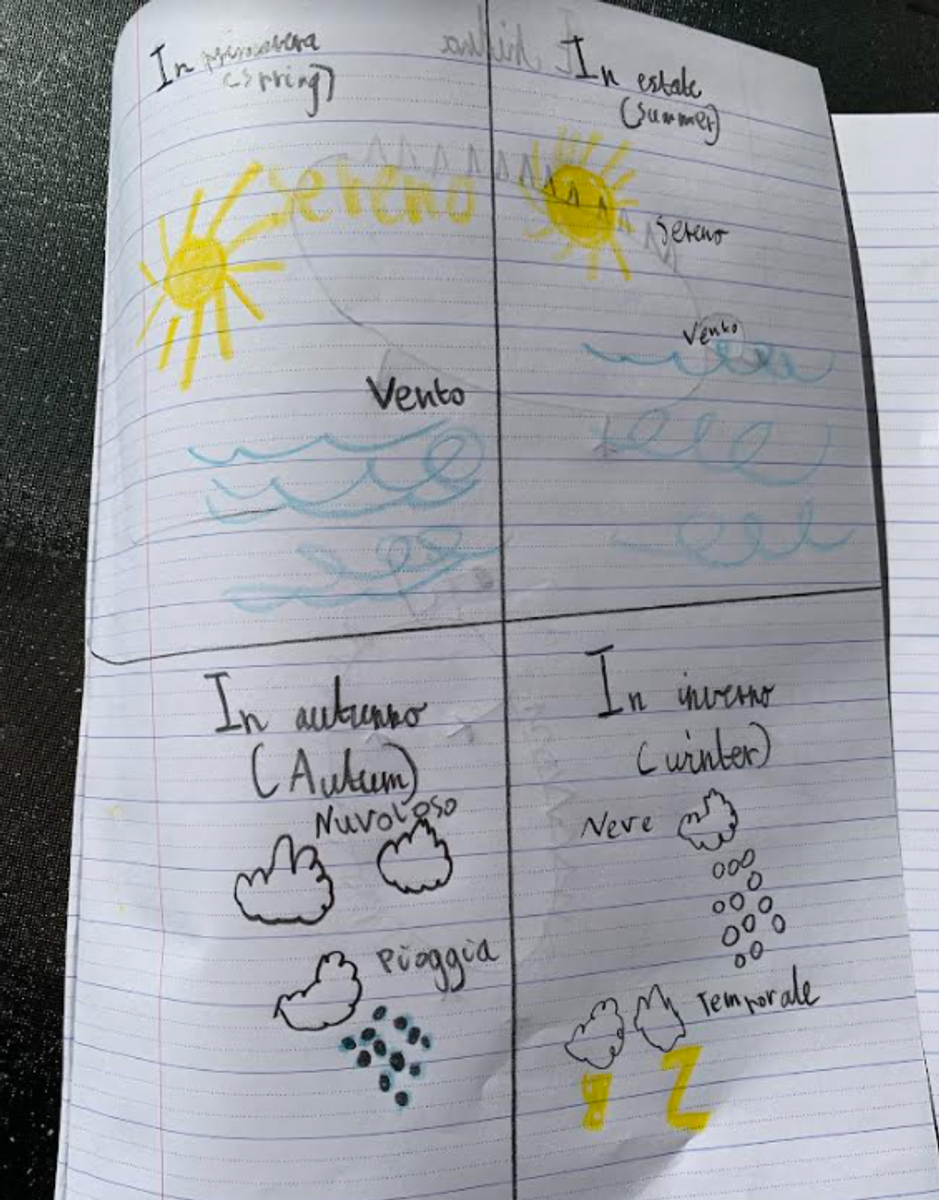 In primavera
(spring)
sereno
Vento
In estate
(summer)
sereno
Vento
In autunno
(Autum)
Nuvoloso
Pioggia
In inverno
(winter)
Neve
Temporale